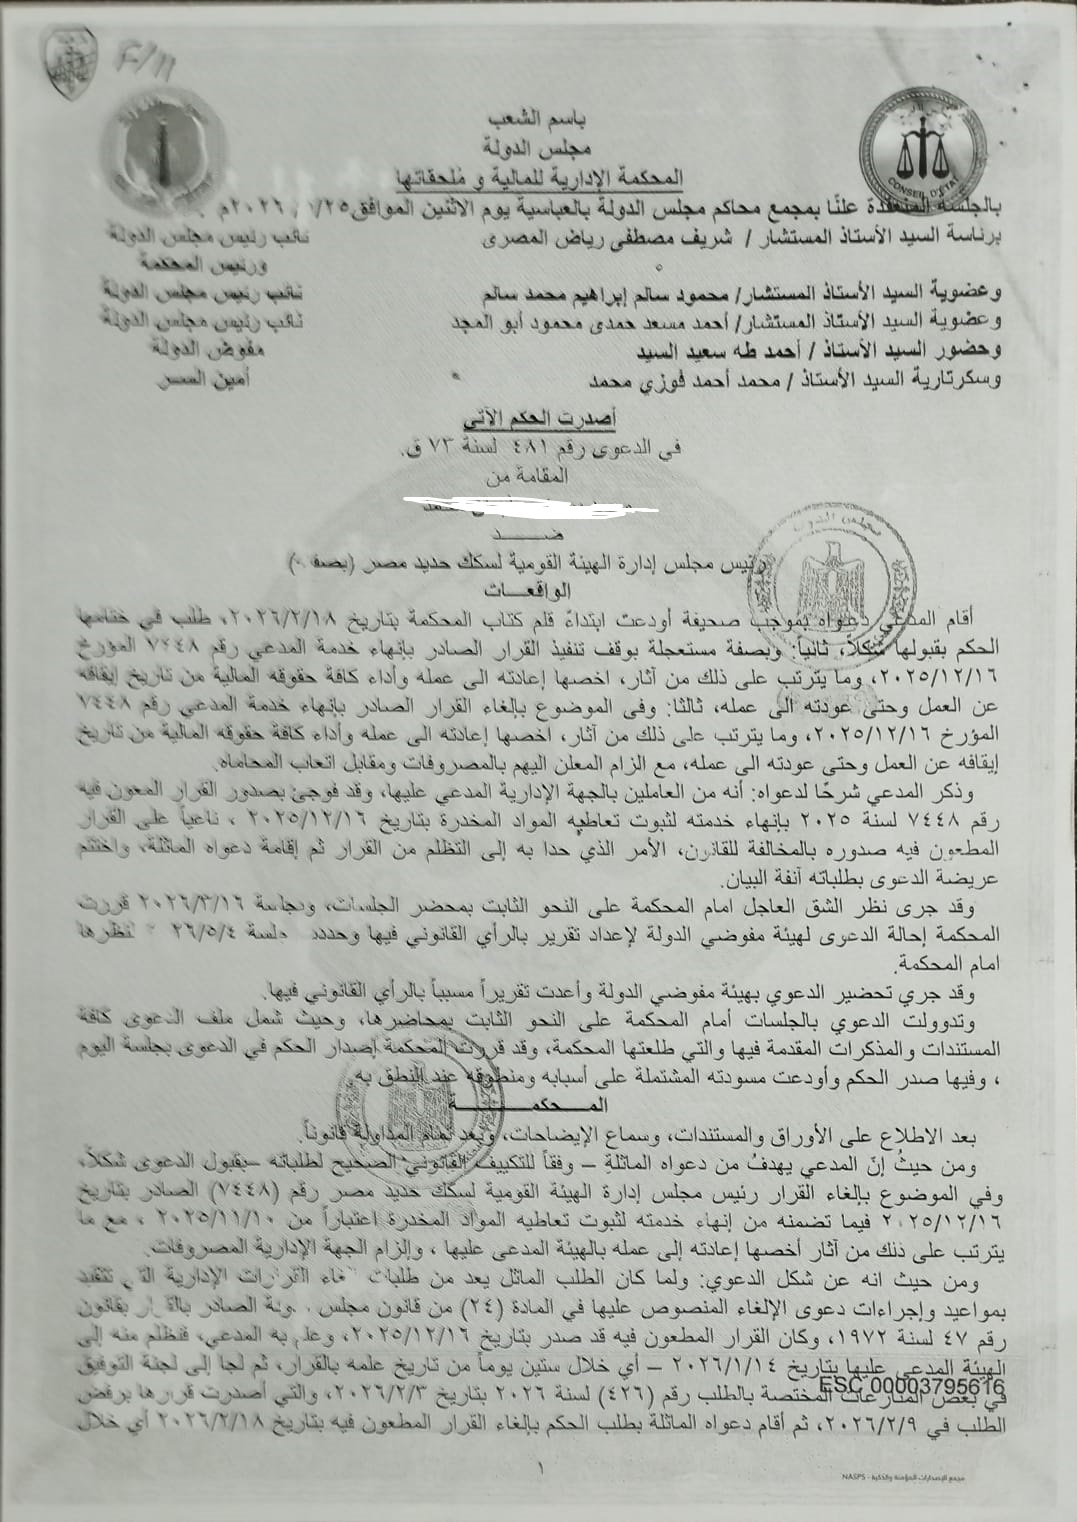 F/11
CONSEIL D'ETAT
باسم الشعب
مجلس الدولة
المحكمة الإدارية للمالية و مُلحقاتها
بالجلسة المنعقدة علنًا بمجمع محاكم مجلس الدولة بالعباسية يوم الاثنين الموافق ٢٠٢٦م
برئاسة السيد الأستاذ المستشار / شريف مصطفى رياض المصرى نائب رئيس مجلس الدولة
ورئيس المحكمة
وعضوية السيد الأستاذ المستشار/ محمود سالم إبراهيم محمد سالم نائب رئيس مجلس الدولة
وعضوية السيد الأستاذ المستشار/ أحمد مسعد حمدى محمود أبو المجد نائب رئيس مجلس الدولة
وحضور السيد الأستاذ / أحمد طه سعيد السيد مفوض الدولة
وسكرتارية السيد الأستاذ / محمد أحمد فوزي محمد أمين السر
أصدرت الحكم الآتى
في الدعوى رقم ٤٨١ لسنة ٧٣ ق.
المقامة من
ضـــــد
رئيس مجلس إدارة الهيئة القومية لسكك حديد مصر (بصفته)
الواقعـــات
أقام المدعي دعواه بموجب صحيفة أودعت ابتداءً قلم كتاب المحكمة بتاريخ ٢٠٢٦/٢/١٨، طلب في ختامها
الحكم بقبولها شكلاً، ثانياً: وبصفة مستعجلة بوقف تنفيذ القرار الصادر بإنهاء خدمة المدعي رقم ٧٤٤٨ المؤرخ
٢٠٢٥/١٢/١٦، وما يترتب على ذلك من آثار، اخصها إعادته الى عمله وأداء كافة حقوقه المالية من تاريخ إيقافه
عن العمل وحتى عودته الى عمله، ثالثا: وفى الموضوع بإلغاء القرار الصادر بإنهاء خدمة المدعي رقم ٧٤٤٨
المؤرخ ٢٠٢٥/١٢/١٦، وما يترتب على ذلك من آثار، اخصها إعادته الى عمله وأداء كافة حقوقه المالية من تاريخ
إيقافه عن العمل وحتى عودته الى عمله، مع الزام المعلن اليهم بالمصروفات ومقابل اتعاب المحاماه.
وذكر المدعي شرحًا لدعواه: أنه من العاملين بالجهة الإدارية المدعي عليها، وقد فوجئ بصدور القرار المعون فيه
رقم ٧٤٤٨ لسنة ٢٠٢٥ بإنهاء خدمته لثبوت تعاطيه المواد المخدرة بتاريخ ٢٠٢٥/١٢/١٦ ، ناعياً على القرار
المطعون فيه صدوره بالمخالفة للقانون، الأمر الذي حدا به إلى التظلم من القرار ثم إقامة دعواه الماثلة، واختتم
عريضة الدعوى بطلباته آنفة البيان.
وقد جرى نظر الشق العاجل امام المحكمة على النحو الثابت بمحضر الجلسات، وبجلسة ٢٠٢٦/٣/١٦ قررت
المحكمة إحالة الدعوى لهيئة مفوضي الدولة لإعداد تقرير بالرأي القانوني فيها وحددت جلسة ٢٦/٥/٤ لنظرها
امام المحكمة.
وقد جري تحضير الدعوي بهيئة مفوضي الدولة وأعدت تقريراً مسبباً بالرأي القانوني فيها.
وتدوولت الدعوي بالجلسات أمام المحكمة على النحو الثابت بمحاضرها، وحيث شمل ملف الدعوى كافة
المستندات والمذكرات المقدمة فيها والتي طلعتها المحكمة، وقد قررت المحكمة إصدار الحكم في الدعوى بجلسة اليوم
، وفيها صدر الحكم وأودعت مسودته المشتملة على أسبابه ومنطوقه عند النطق به.
المـــحكمـــــــة
بعد الاطلاع على الأوراق والمستندات، وسماع الإيضاحات، وبعد تمام المداولة قانوناً.
ومن حيثُ إنّ المدعي يهدفُ من دعواه الماثلةِ – وفقاً للتكييف القانوني الصحيح لطلباته –بقبول الدعوى شكلاً،
وفي الموضوع بإلغاء القرار رئيس مجلس إدارة الهيئة القومية لسكك حديد مصر رقم (٧٤٤٨) الصادر بتاريخ
٢٠٢٥/١٢/١٦ فيما تضمنه من إنهاء خدمته لثبوت تعاطيه المواد المخدرة اعتباراً من ٢٠٢٥/١١/١٠ ، مع ما
يترتب على ذلك من آثار أخصها إعادته إلى عمله بالهيئة المدعى عليها ، وإلزام الجهة الإدارية المصروفات.
ومن حيث انه عن شكل الدعوي: ولما كان الطلب الماثل يعد من طلبات الغاء القرارات الإدارية التي تتقيد
بمواعيد وإجراءات دعوى الإلغاء المنصوص عليها في المادة (٢٤) من قانون مجلس الدولة الصادر بالقرار بقانون
رقم ٤٧ لسنة ١٩٧٢، وكان القرار المطعون فيه قد صدر بتاريخ ٢٠٢٥/١٢/١٦، وعلم به المدعي، فتظلم منه إلى
الهيئة المدعى عليها بتاريخ ٢٠٢٦/١/١٤ – أي خلال ستين يوماً من تاريخ علمه بالقرار، ثم لجا إلى لجنة التوفيق
في بعض المنازعات المختصة بالطلب رقم (٤٢٦) لسنة ٢٠٢٦ بتاريخ ٢٠٢٦/٢/٣، والتي أصدرت قرارها برفض
ESC 00003795616
الطلب في ٢٠٢٦/٢/٩، ثم أقام دعواه الماثلة بطلب الحكم بإلغاء القرار المطعون فيه بتاريخ ٢٠٢٦/٢/١٨ أي خلال
١
مجمع الإصدارات المؤمنة والذكية - NASPS